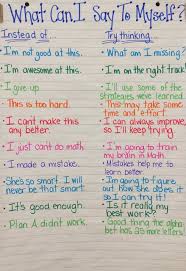 What Can I Say To Myself?
Instead of... Try thinking...
• I'm not good at this. • What am I missing?
• I'm awesome at this. • I'm on the right track!
• I give up. • I'll use some of the
strategies we've learned.
• This is too hard. • This may take some
time and effort.
• I can't make this • I can always improve,
any better. so I'll keep trying.
• I just can't do math. • I'm going to train
my brain in Math.
• I made a mistake. • Mistakes help me to
learn better.
• She's so smart. I will • I'm going to figure
never be that smart. out how she does it
so I can try it!
• It's good enough. • Is it really my
best work?
• Plan A didn't work. • Good thing the alpha
bet has 25 more letters